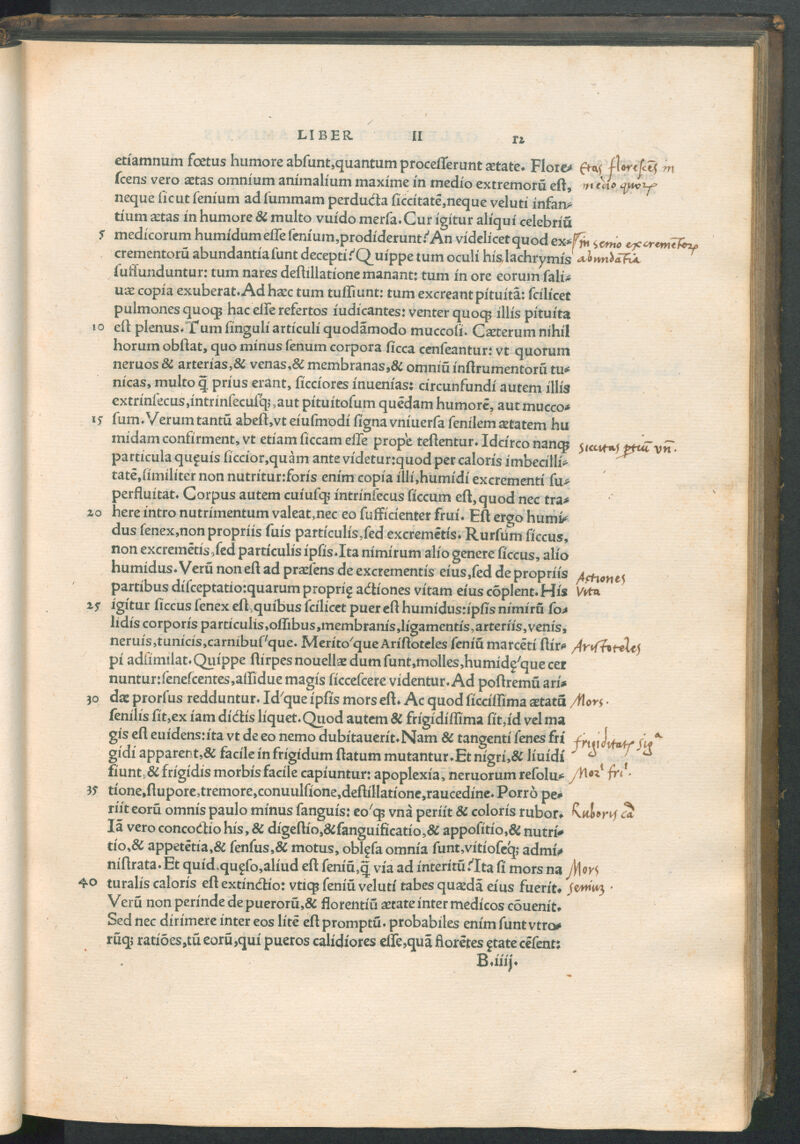 LIBER II 12
etiamnum fœtus humore absunt,quantum processerunt ætate. Flore-
scens vero ætas omnium animalium maxime in medio extremorū est,
neque sicut senium ad summam perducta siccitatē,neque veluti infan-
tium ætas in humore & multo vuido mersa. Cur igitur aliqui celebriū
5 medicorum humidum esse senium,prodiderunt? An videlicet quod ex-
crementorū abundantia sunt decepti? Quippe tum oculi his lachrymis
suffunduntur: tum nares destillatione manant: tum in ore eorum sali-
uæ copia exuberat. Ad hæc tum tussiunt: tum excreant pituitā: scilicet
pulmones quoq; hac esse refertos iudicantes: venter quoq; illis pituita
10 est plenus. Tum singuli articuli quodāmodo muccosi. Cæterum nihil
horum obstat, quo minus senum corpora sicca censeantur: vt quorum
neruos & arterias,& venas,& membranas,& omniū instrumentorū tu-
nicas, multo q̃ prius erant, sicciores inuenias: circunfundi autem illis
extrinsecus,intrinsecusq;,aut pituitosum quēdam humorē, aut mucco-
15 sum. Verum tantū abest,vt eiusmodi signa vniuersa senilem ætatem hu
midam confirment, vt etiam siccam esse prope testentur. Idcirco nanq;
particula quęuis siccior,quàm ante videtur:quod per caloris imbecilli-
tatē,similiter non nutritur:foris enim copia illi,humidi excrementi su-
perfluitat. Corpus autem cuiusq; intrinsecus siccum est,quod nec tra-
20 here intro nutrimentum valeat,nec eo sufficienter frui. Est ergo humi-
dus senex,non propriis suis particulis,sed excremētis. Rursum siccus,
non excremētis,sed particulis ipsis. Ita nimirum alio genere siccus, alio
humidus. Verū non est ad præsens de excrementis eius,sed de propriis
partibus disceptatio:quarum proprię actiones vitam eius cōplent. His
25 igitur siccus senex est,quibus scilicet puer est humidus:ipsis nimirū so-
lidis corporis particulis,ossibus,membranis,ligamentis,arteriis,venis,
neruis,tunicis,carnibus'que. Merito'que Aristoteles seniū marcēti stir-
pi adsimilat. Quippe stirpes nouellæ dum sunt,molles,humidę'que cer
nuntur:senescentes,assidue magis siccescere videntur. Ad postremū ari-
30 dæ prorsus redduntur. Id'que ipsis mors est. Ac quod siccissima ætatū
senilis sit,ex iam dictis liquet. Quod autem & frigidissima sit,id vel ma
gis est euidens:ita vt de eo nemo dubitauerit. Nam & tangenti senes fri
gidi apparent,& facile in frigidum statum mutantur. Et nigri,& liuidi
fiunt,& frigidis morbis facile capiuntur: apoplexia, neruorum resolu-
35 tione,stupore,tremore,conuulsione,destillatione,raucedine. Porrò pe-
riit eorū omnis paulo minus sanguis: eo'q; vnà periit & coloris rubor.
Iā vero concoctio his, & digestio,& sanguificatio,& appositio,& nutri-
tio,& appetētia,& sensus,& motus, oblęsa omnia sunt,vitioseq; admi-
nistrata. Et quid,quęso,aliud est seniū,q̃ via ad interitū? Ita si mors na
40 turalis caloris est extinctio: vtiq; seniū veluti tabes quædā eius fuerit.
Verū non perinde de puerorū,& florentiū ætate inter medicos cōuenit.
Sed nec dirimere inter eos litē est promptū. probabiles enim sunt vtro-
rūq; ratiōes,tū eorū,qui pueros calidiores esse,quā florētes ętate cēsent:
B.iiij.
Etas florescēs in
medio
in senio
abundātia
siccitas
Actiones
Vita
Aristoteles
Mors.
Ruboris cā
Mors